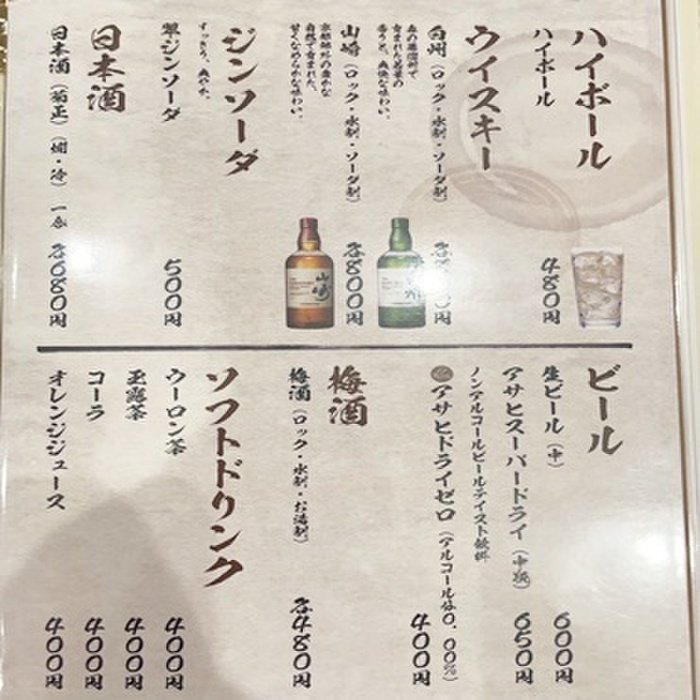 ハイボール
ハイボール 480円
ウイスキー
白州(ロック・水割・ソーダ割)
森の蒸溜所で
育まれた若葉の
香りと、爽快な味わい。
山崎(ロック・水割・ソーダ割) 各800円
京都郊外の豊かな
自然で育まれた、
甘くなめらかな味わい。
ジンソーダ
すっきり、爽やか。
翠ジンソーダ 500円
日本酒
日本酒(菊正)(燗・冷) 一合 各680円
ビール
生ビール(中) 600円
アサヒスーパードライ(中瓶) 650円
ノンアルコールビールテイスト飲料
アサヒドライゼロ(アルコール分0.00%) 400円
梅酒
梅酒(ロック・水割・お湯割) 各480円
ソフトドリンク
ウーロン茶 400円
玉露茶 400円
コーラ 400円
オレンジジュース 400円
山崎